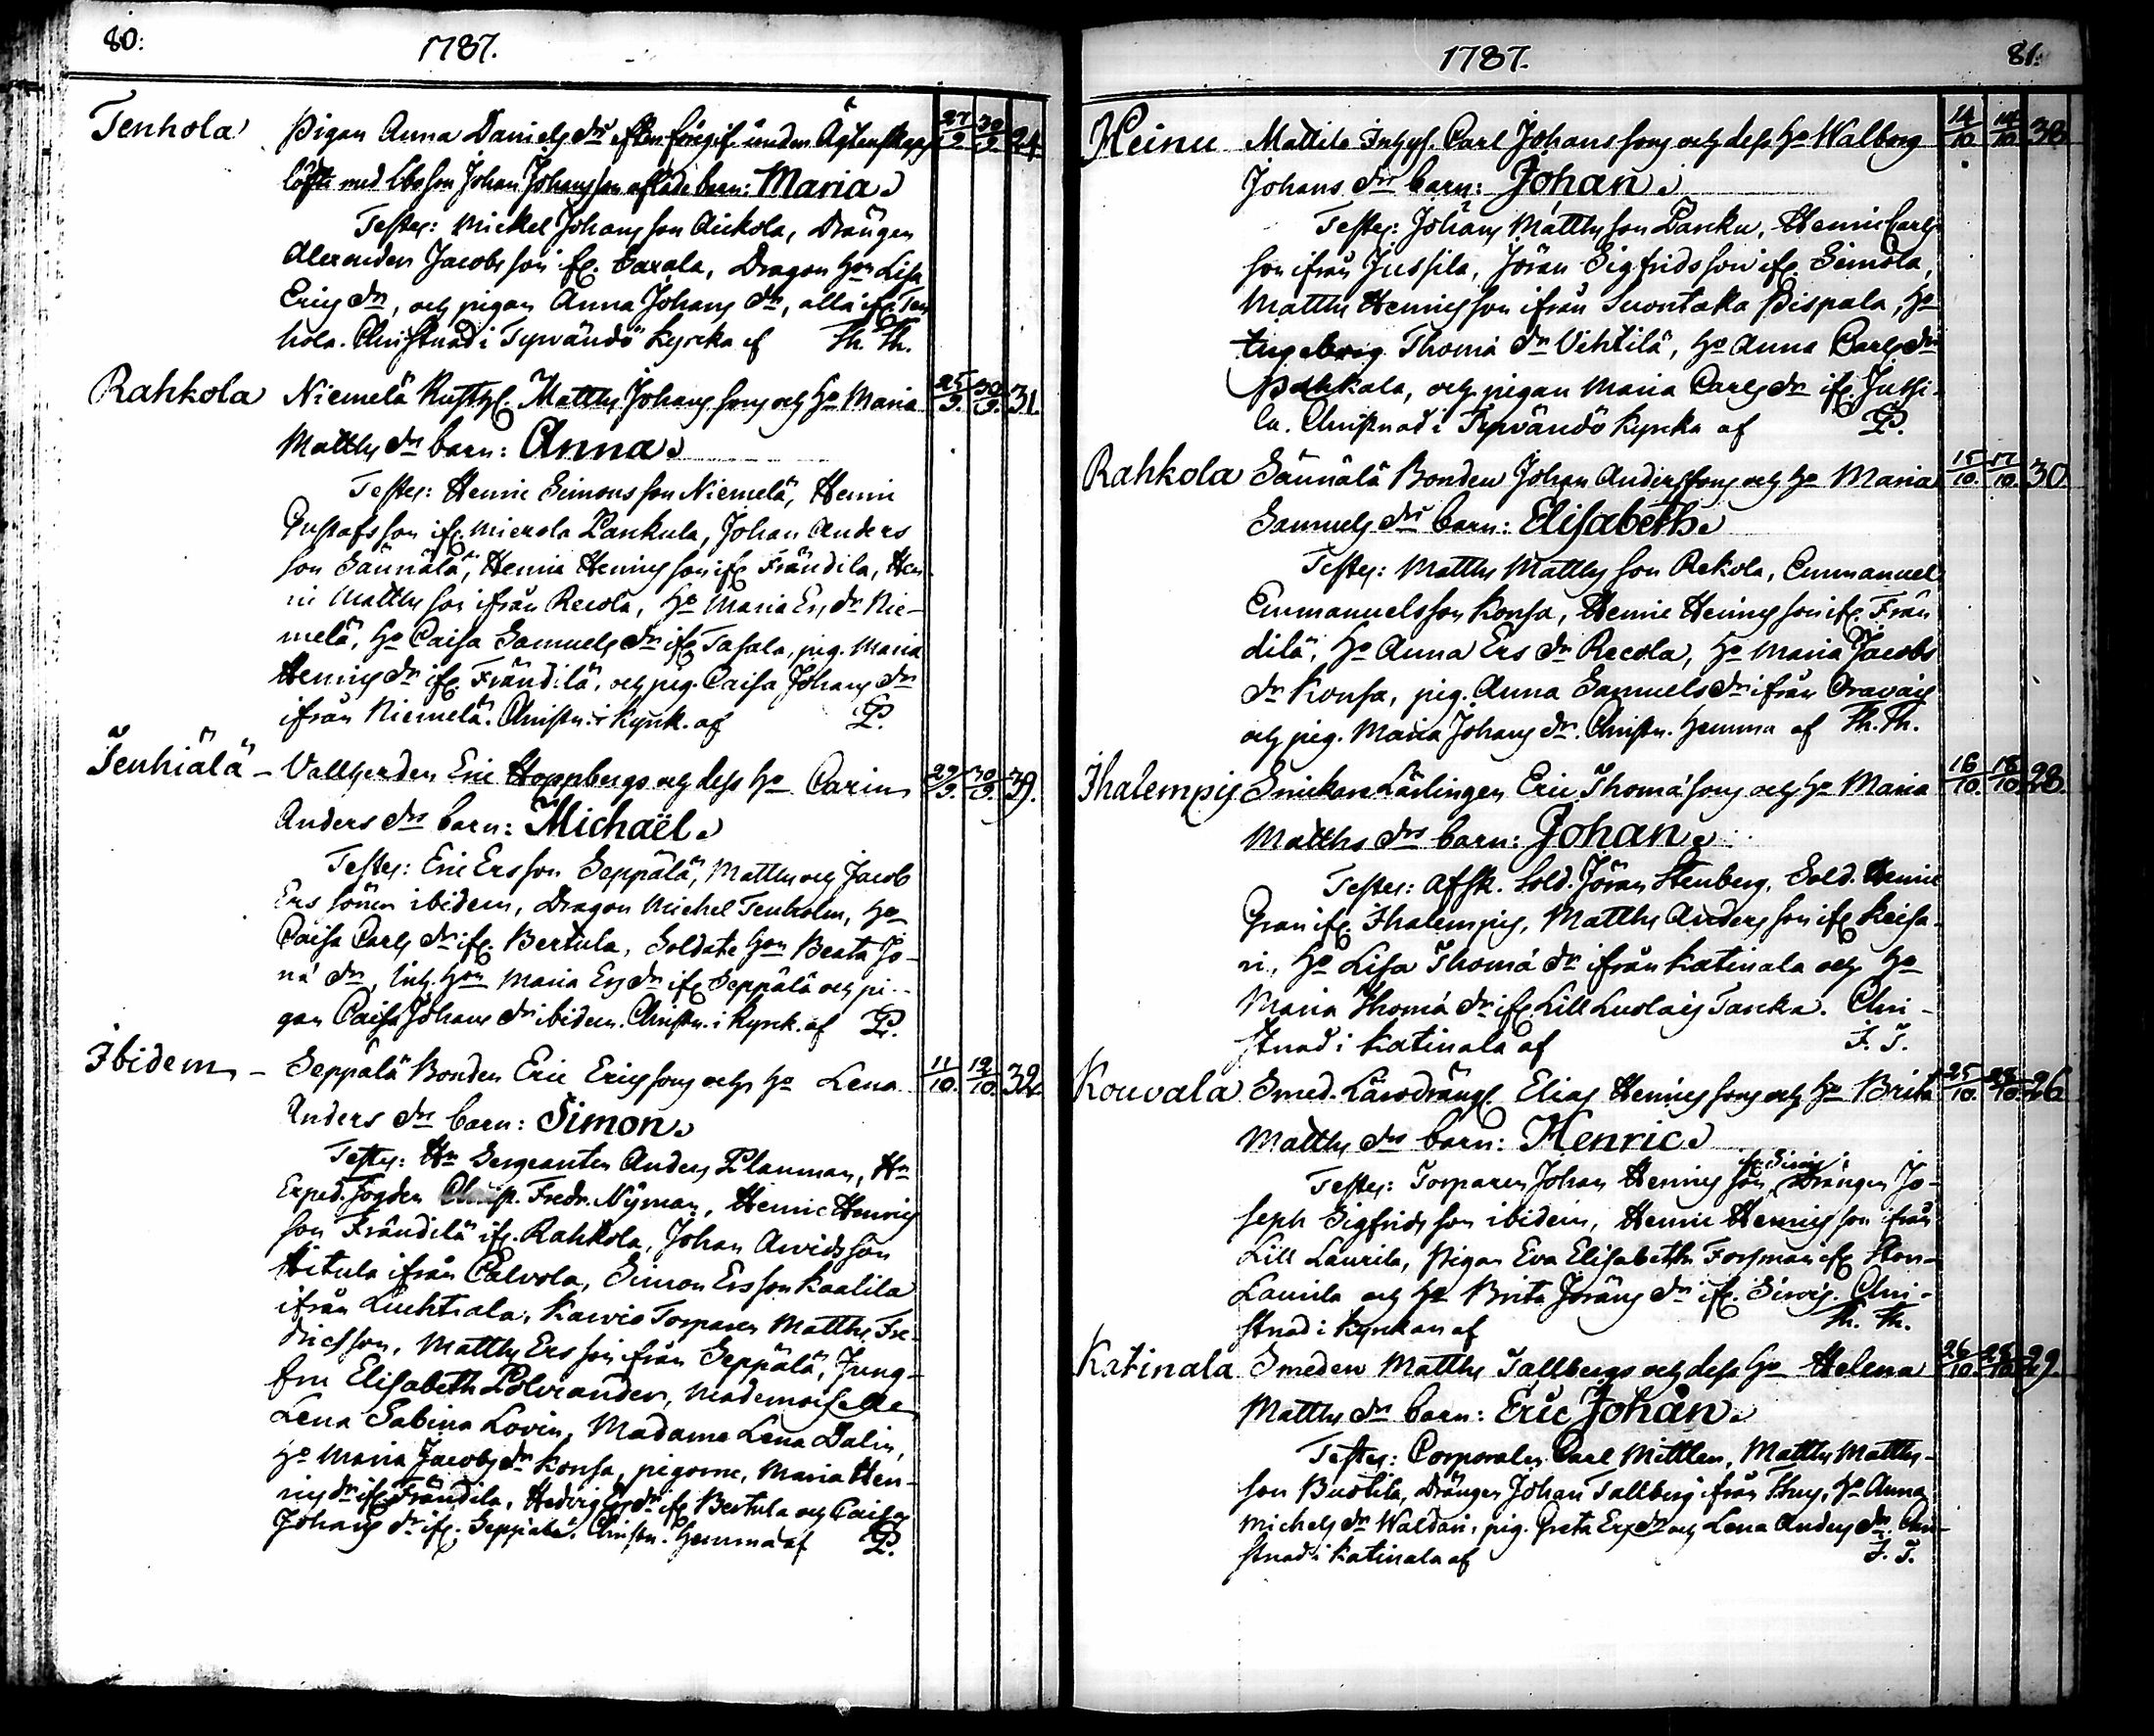 80:
1787.
Tenhola Pigan Anna Daniels dr efter föregif. under Ägtenskaps 27/9 30/9 24
löfte med Lbs son Johan Johansson aflade barn: Maria
Testes: Mickel Johansson Aickola, Drängen
Alexander Jacobsson ifr. Saxala, Dragon hon Lisa
Erics dr, och pigan Anna Johans dr, alla ifr. Ten
hola. Christnad i Tyrvändö kyrcka af Th. Th.
Rahkola Niemelä Rusth. Matths Johanssons och ho Maria 25/9. 30/9. 31.
Matths dr barn: Anna
Testes: Henric Simonsson Niemelä, Henric
Gustafsson ifr Mierola Pankula, Johan Anders
son Sännälä, Henric Henricsson ifr Frändila, Hen
ric Matthsson ifrån Recola, ho Maria Ers dr Nie-
melä, ho Caisa Samuels dr ifr Tasala, pig. Maria
Henrics dr ifr Frändilä, och pig. Caisa Johans dr
ifrån Niemelä. Christn. i Kyrck. af P.
Jenhiälä - Vallherden Eric Hoppbergs och dess ho Carin 29/9. 30/9. 39.
Anders drs barn: Michaël
Testes: Eric Ersson Seppälä, Matths och Jacob
Ers söner ibidem, Dragon Michel Tenholm, ho
Caisa Carls dr ifr. Bertula, Soldats hon Beata Jo-
nä dr, Inh. hon Maria Ers dr ifr Seppälä och pi-
gan Caisa Johans dr ibidem. Christn. i Kyrck. af P.
Ibidem - Seppälä Bonden Eric Ericssons och ho Lena 11/10. 12/10. 32.
Anders drs barn: Simon
Testes: Hr Sergeanten Anders Planman, Hr
Exped. Fogden Christ. Fredr. Nyman, Henric Henrics
son Frändilä ifr. Rahkola, Johan Arvidsson
Hitula ifrån Calvola, Simon Ersson Kaalila
ifrån Luchtiala, Karvio Torparen Matths Fre-
dricsson, Matths Ersson ifrån Seppälä, Jung-
fru Elisabeth Polviander, Mademoiselle
Lena Sabina Lovin, Madame Lena Dalin,
ho Maria Jacobs dr Konsa, pigorne, Maria Hen-
rics dr ifr Frändila, Hedvig Ers dr ifr Bertula och Caisa
Johans dr ifr. Seppälä. Christn. hemma af P.
1787.
81.
Heinu Mattila Inhys. Carl Johanssons och dess ho Walborg 14/10 14/10 38
Johans drs barn: Johan
Testes: Johan Matthsson Panku, Henric Carls
son ifrån Jussila, Jöran Sigfridsson ifr. Simola,
Matths Henricsson ifrån Suontaka Pispala, ho
Ingeborg Thomä dr Vihtilä, ho Anna Carls dr
Pahkala, och pigan Maria Carls dr ifr. Jussi-
la. Christnad i Tyrvändö Kyrcka af P.
Rahkola Sännälä Bonden Johan Anderssons och ho Maria 15/10. 17/10. 30
Samuels drs barn: Elisabeth
Testes: Matths Matthsson Rekola, Emmanuel
Emmanuelsson Konsa, Henric Henricsson ifr. Frän
dilä, ho Anna Ers dr Recola, ho Maria Jacobs
dr Konsa, pig. Anna Samuels dr ifrån
och pig. Maria Johans dr. Christn. hemma af Th. Th.
Ihalempis Snickare Lärlingen Eric Thomä sons och ho Maria 16/10. 18/10. 28.
Matths drs barn: Johan
Testes: Afsk. Sold. Jöran Stenberg, Sold. Henric
Gran ifr. Ihalempis, Matths Andersson ifr Keisa-
ri, ho Lisa Thomä dr ifrån Katinala och ho
Maria Thomä dr ifr Lill Luolais Tancka. Chri-
stnad i Katinala af J. T.
Kouvala Smed. Lärodräng. Elias Henricssons och ho Brita 25/10. 28/10. 26
Matths drs barn: Henric
Testes: Torparen Johan Henricsson fr Siwis, Drängen Jo-
seph Sigfridsson ibidem, Henric Henricsson ifrån
Lill Laurila, pigan Eva Elisabeth Forsman ifr Stor-
Laurila och ho Brita Jöräns dr ifr. Siwis. Chri-
stnad i Kyrckan af Th. Th.
Katinala Smeden Matths Tallbergs och dess ho Helena 26/10. 28/10 29.
Matths drs barn: Eric Johan
Testes: Corporalen Carl Mittlen, Matths Matths-
son Buotila, Drängen Johan Tallberg ifrån Thuy, ho Anna
Michels dr Waldari, pig. Greta Ers dr och Lena Anders dr. Chri-
stnad i Katinala af J. T.